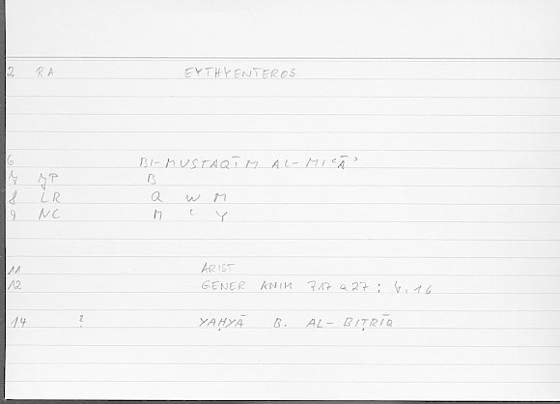 2 RA EYTHYENTEROS
6 BI-MUSTAQĪM AL-MIʿĀʾ
7 JP B
8 LR Q W M
9 NC M ʿ Y
11 ARIST
12 GENER ANIM 717 a 27 : 7.16
14 ? YAḤYĀ B. AL-BIṬRĪQ